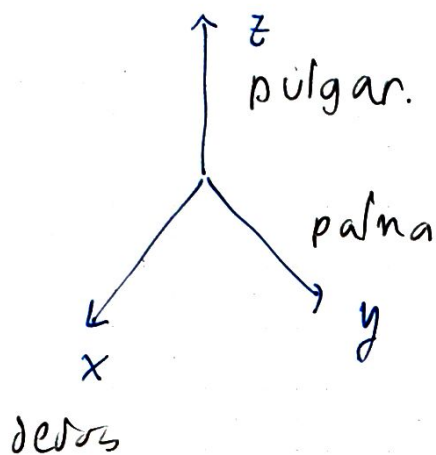 z
pulgar.
palma
y
x
dedos